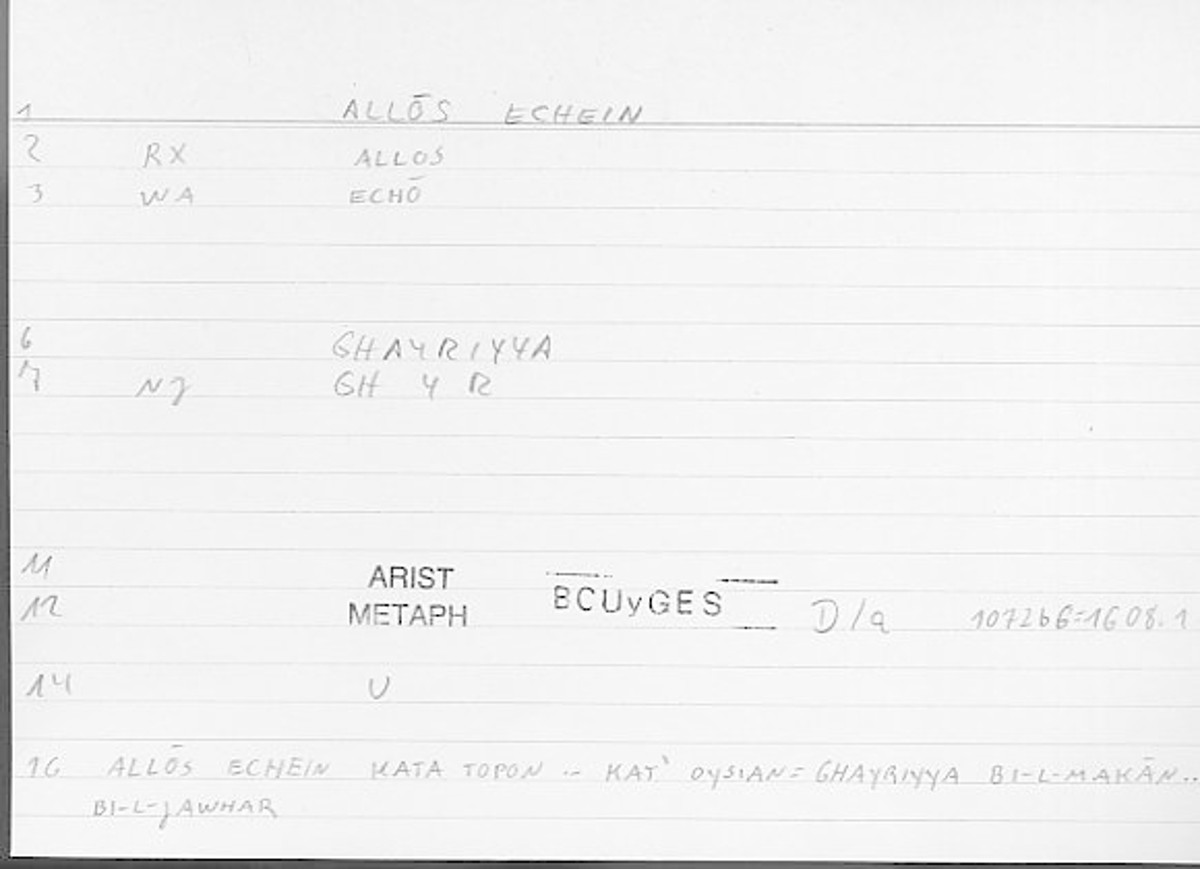 1 ALLŌS ECHEIN
2 RX ALLOS
3 WA ECHŌ
6 GHAYRIYYA
7 NJ GH Y R
11 ARIST
12 METAPH BCUyGES D/a 1072b6=1608.1
14 U
16 ALLŌS ECHEIN KATA TOPON .. KAT' OYSIAN = GHAYRIYYA BI-L-MAKĀN..
BI-L-JAWHAR